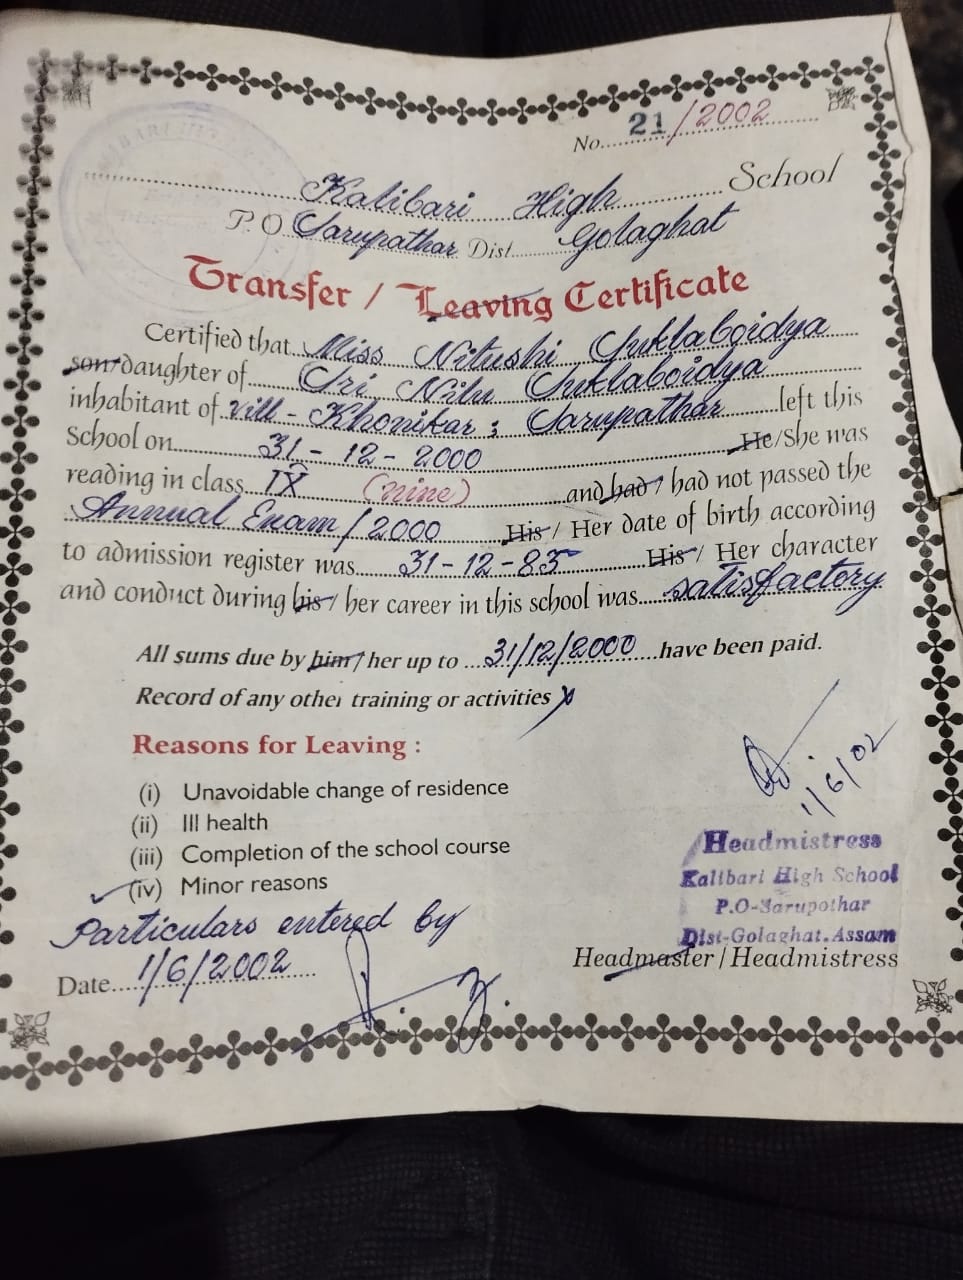 No. 21/2002
Kalibari High School
P.O. Sarupathar Dist. Golaghat
Transfer / Leaving Certificate
Certified that Miss Nitushi Suklaboidya
son/daughter of Sri Nilu Suklaboidya
inhabitant of Vill - Khonikar ; Sarupathar left this
School on 31-12-2000 He/She was
reading in class IX (nine) and had / had not passed the
Annual Exam/2000 His / Her date of birth according
to admission register was 31-12-83 His / Her character
and conduct during his / her career in this school was satisfactory.
All sums due by him / her up to 31/12/2000 have been paid.
Record of any other training or activities x
Reasons for Leaving :
(i) Unavoidable change of residence
(ii) Ill health
(iii) Completion of the school course
(iv) Minor reasons
1/6/02
Headmistress
Kalibari High School
P.O-Sarupothar
Dist-Golaghat. Assam
Headmaster / Headmistress
Particulars entered by
Date 1/6/2002